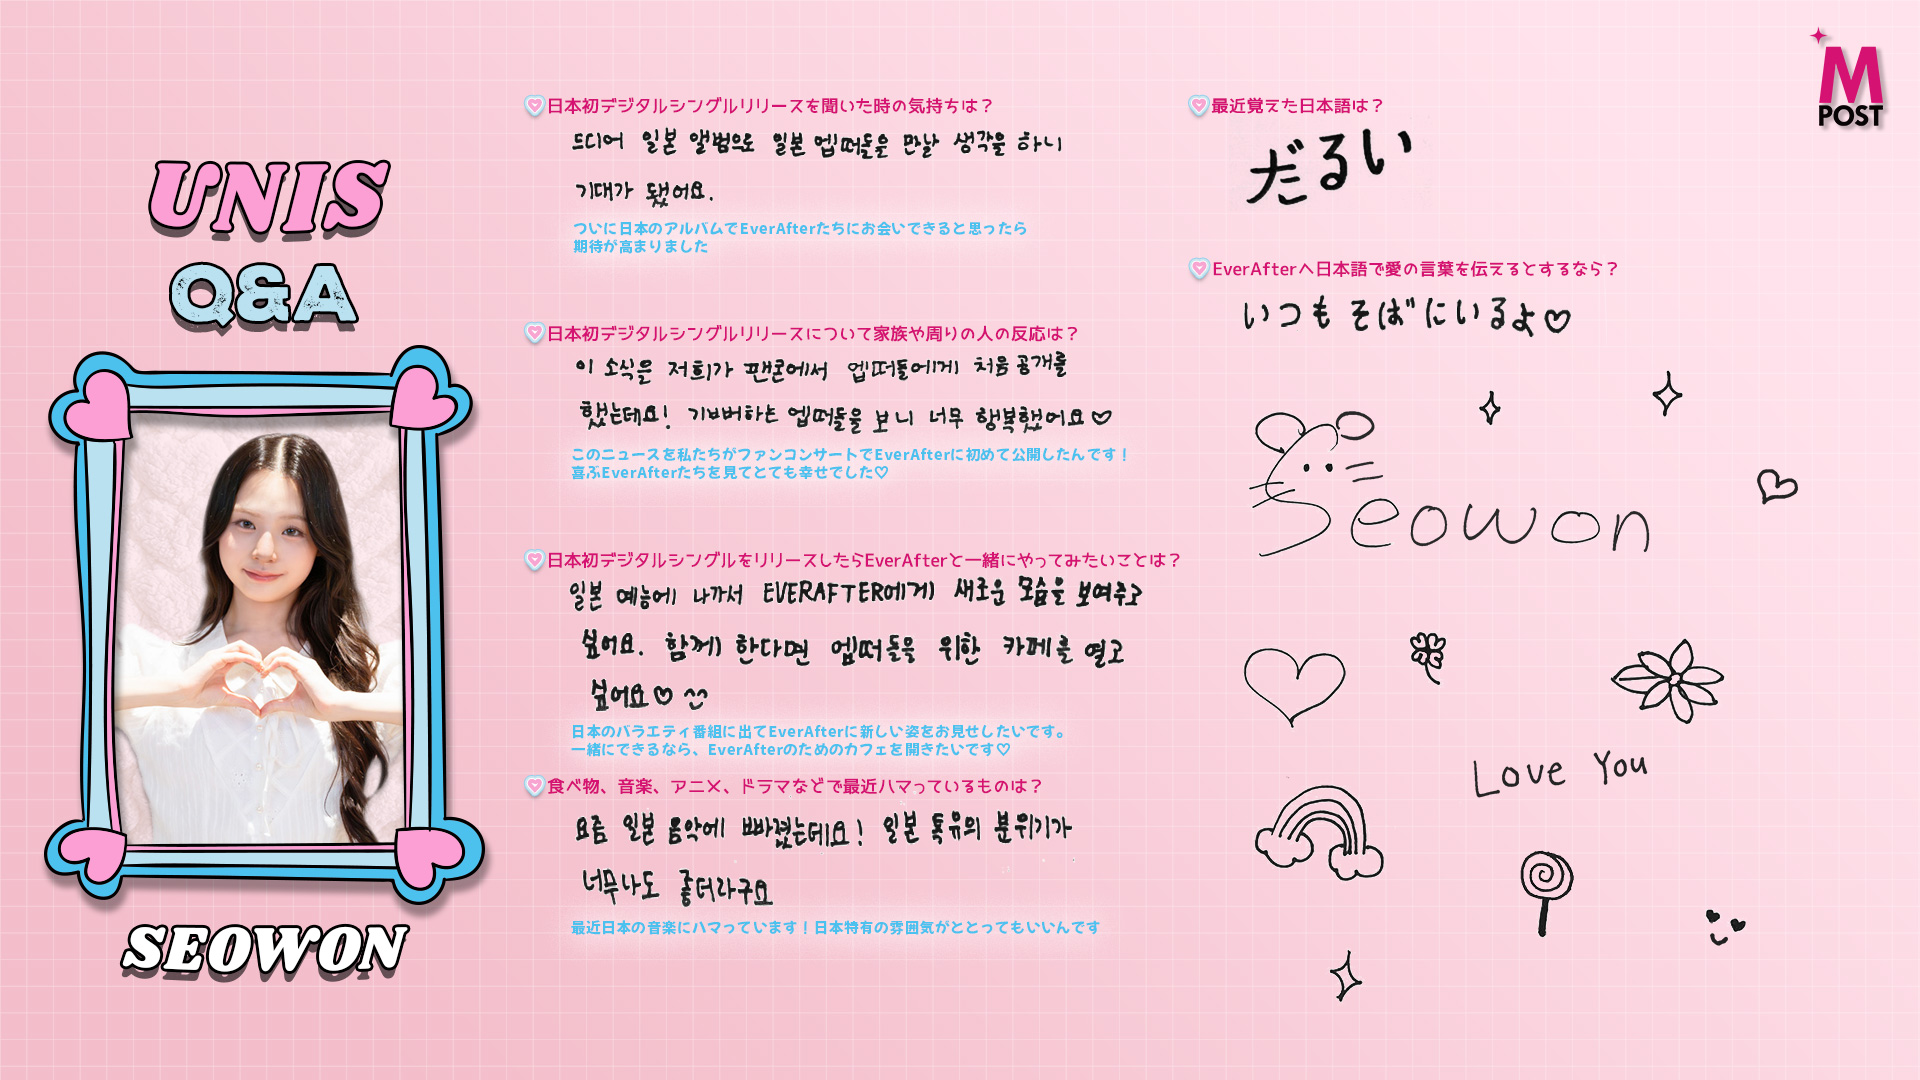 UNIS
Q&A
SEOWON
日本初デジタルシングルリリースを聞いた時の気持ちは？
드디어 일본 앨범으로 일본 엡떠들을 만날 생각을 하니
기대가 됐어요.
ついに日本のアルバムでEverAfterたちにお会いできると思ったら
期待が高まりました
日本初デジタルシングルリリースについて家族や周りの人の反応は？
이 소식을 저희가 팬콘에서 엡떠들에게 처음 공개를
했는데요! 기뻐하는 엡떠들을 보니 너무 행복했어요♡
このニュースを私たちがファンコンサートでEverAfterに初めて公開したんです！
喜ぶEverAfterたちを見てとても幸せでした♡
日本初デジタルシングルをリリースしたらEverAfterと一緒にやってみたいことは？
일본 예능에 나가서 EVERAFTER에게 새로운 모습을 보여주고
싶어요. 함께 한다면 엡떠들을 위한 카페를 열고
싶어요♡
日本のバラエティ番組に出てEverAfterに新しい姿をお見せしたいです。
一緒にできるなら、EverAfterのためのカフェを開きたいです♡
食べ物、音楽、アニメ、ドラマなどで最近ハマっているものは？
요즘 일본 음악에 빠졌는데요! 일본 특유의 분위기가
너무나도 좋더라구요
最近日本の音楽にハマっています！日本特有の雰囲気がととってもいいんです
最近覚えた日本語は？
だるい
EverAfterへ日本語で愛の言葉を伝えるとするなら？
いつもそばにいるよ♡
Seowon
Love You
M
POST